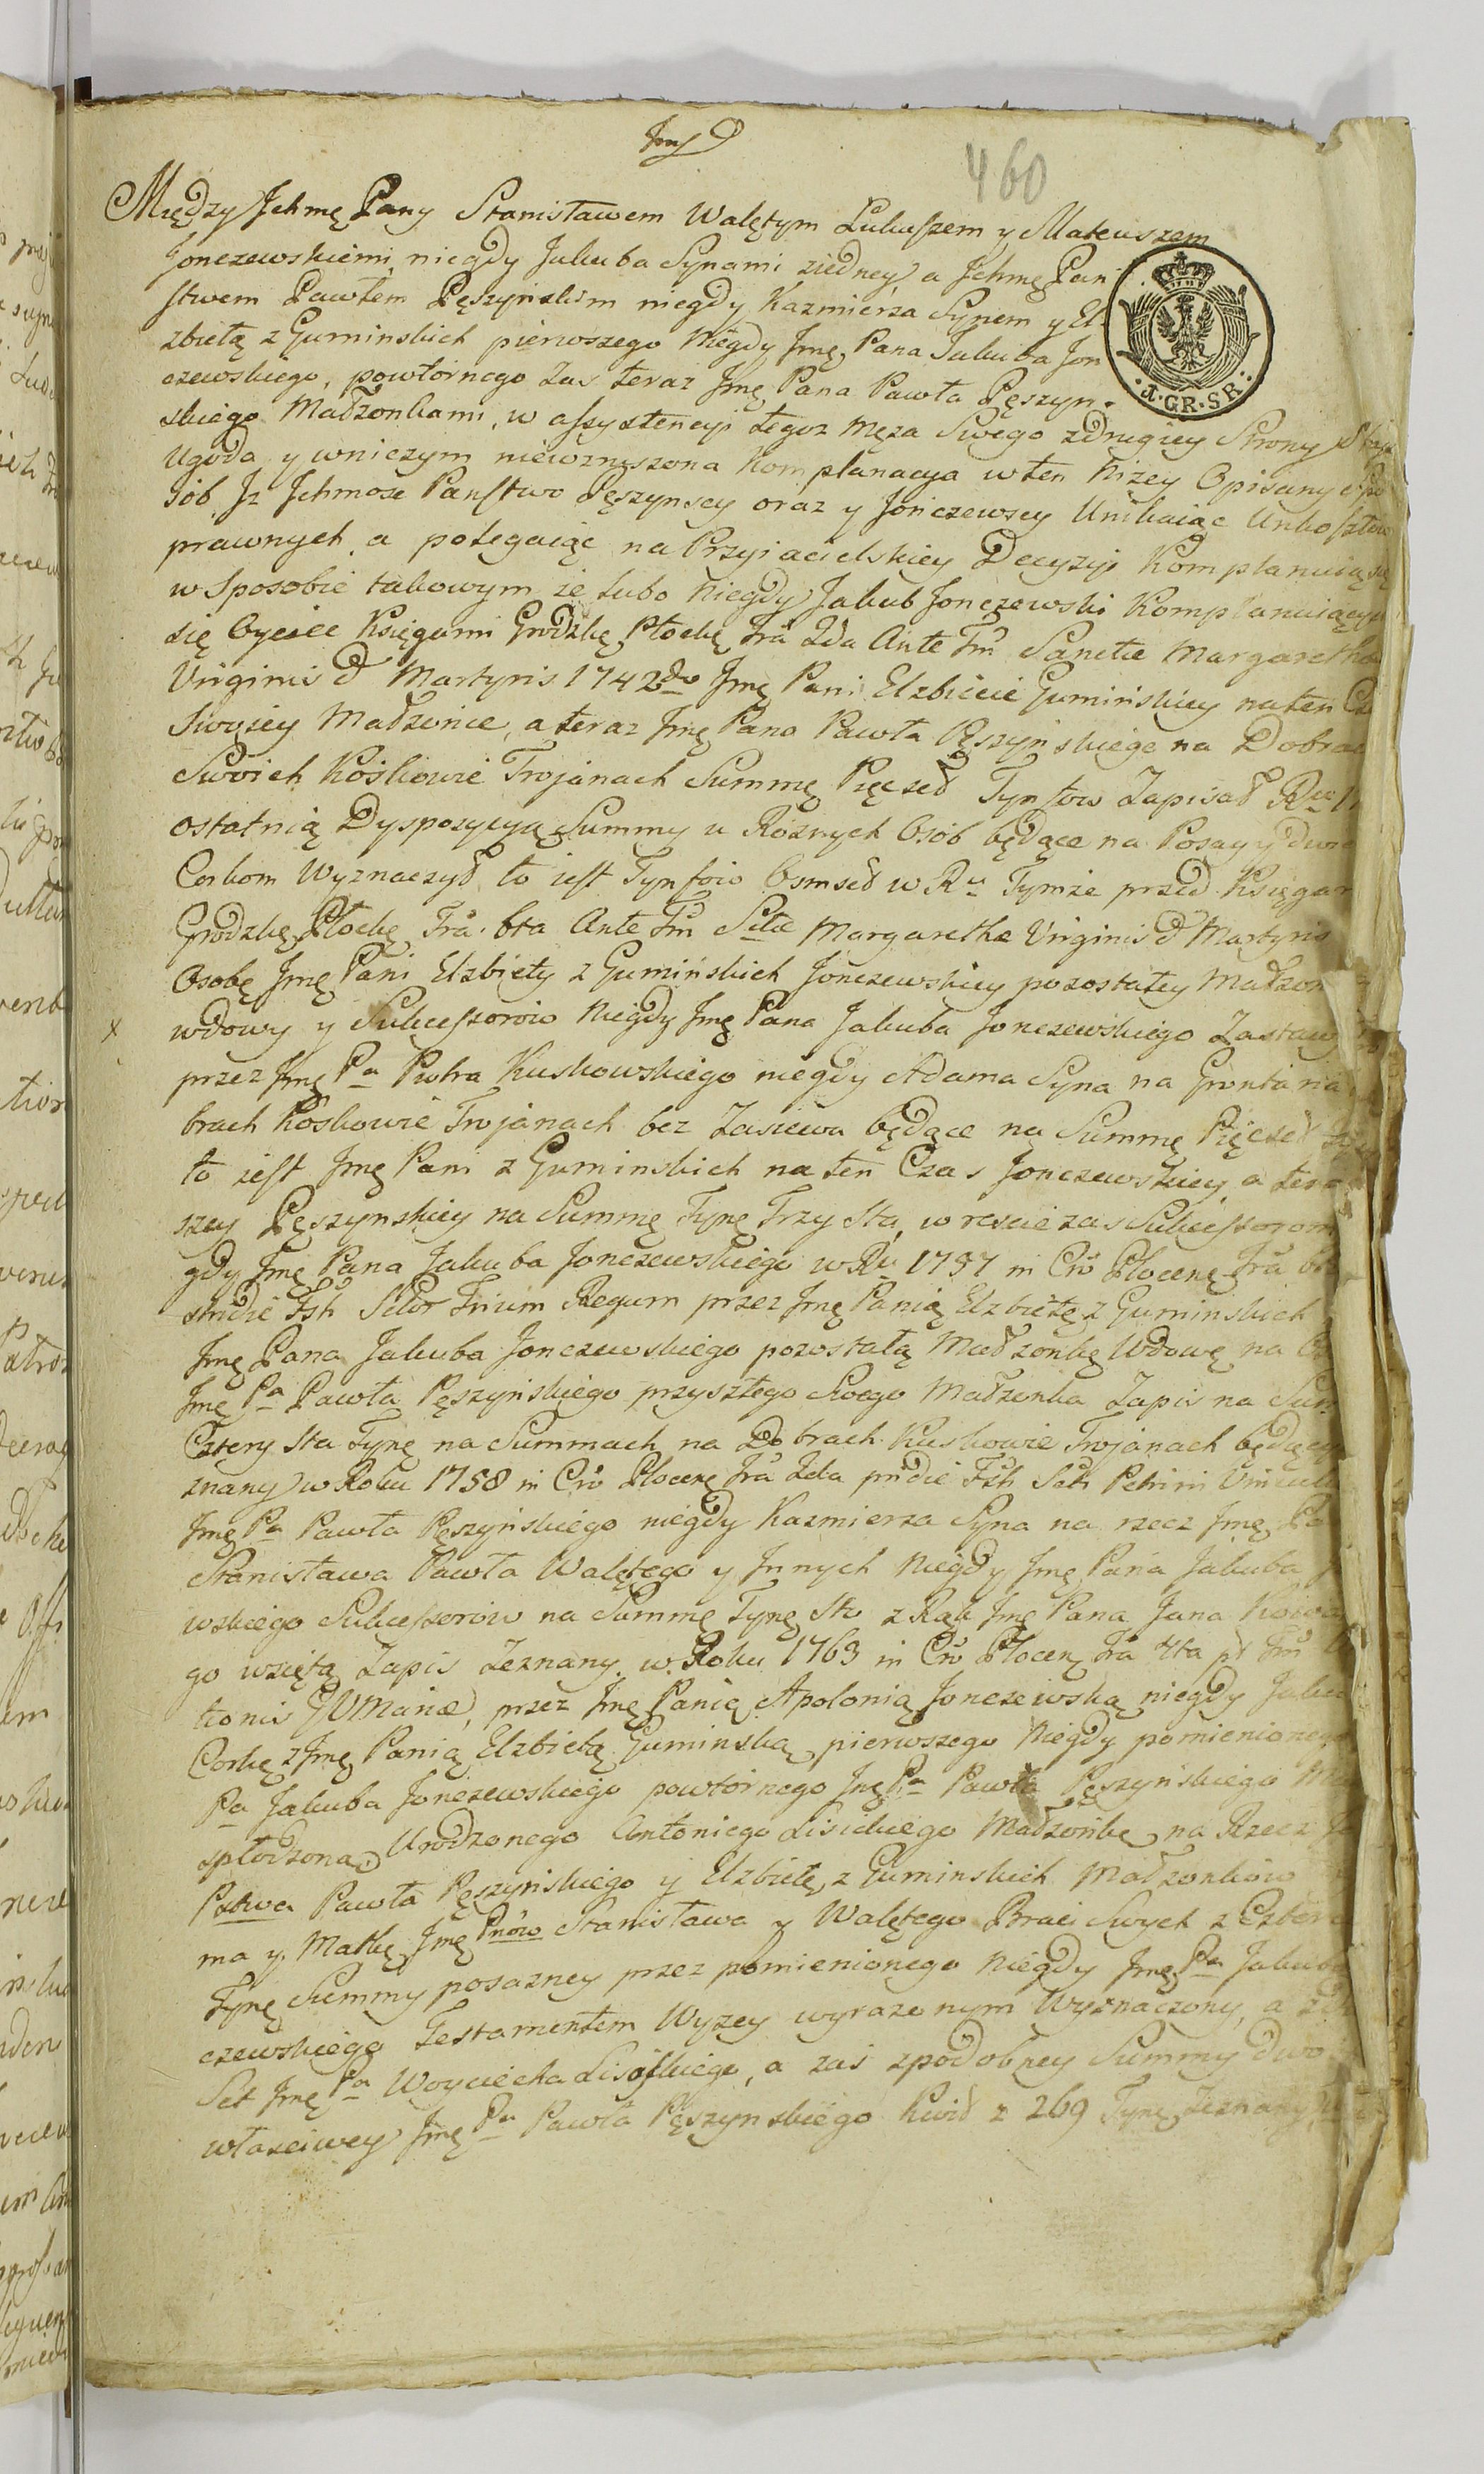 460
Między Jchmę Pany Stanisławem Walętym Lukaszem y Mateuszem
Jonczewskiemi niegdy Jakuba Synami ziedney, a Jchmę Pań
stwem Pawłem Pęszyńskim niegdy Kazmierza Synem y El-
zbietą z Guminskich pierwszego niegdy Jmę Pana Jakuba Jon
czewskiego, powtornego zas teraz Jmę Pana Pawła Pęszyn-
skiego Małżonkami, w assystencyi tegoz męza Swego zdrugiey Strony
Ugoda y wniczym niewzruszona Komplanacya wten nizey Opisany Spo
sób, Jz Jchmosc Panstwo Pęszynscy oraz y Jonczewscy Unikaiąc Unkosztow
prawnych, a polegaiąc na Przyiacielskiey Decyzyi Komplanuią się
w Sposobie takowym ze lubo niegdy Jakub Jonczewski Komplanuiących
się Oyciec Xięgami Grodzkę Płockę fra 2da Ante Fm Sanctæ Margarethæ
Virginis & Martyris 1742do Jmę Pani Elzbiecie Gumińskiey naten Cz
Swoiey Małżonce, a teraz Jmę Pana Pawła Pęszyńskiego na Dobrac
Swoich Kośkowie Trojanach Summę Pięcset Tynfow Zapisał Ru
ostatnią Dyspozycyą Summy u Roznych Osób będące na Posag y dwie
Corkom Wyznaczył to iest Tynfow Osmset w Ru Tymze przed Księgam
Grodzkę Płockę fra 6ta Ante Fm Sctæ Margarethæ Virginis & Martyris
Osobę Jmę Pani Elzbiety z Gumińskich Jonczewskiey pozostałey Małzon
x
wdowy y Sukcessorow niegdy Jmę Pana Jakuba Jonczewskiego Zastaw
przez Jmę Pa Piotra Kuskowskiego niegdy Adama Syna na Gronta na
brach Kośkowie Trojanach bez Zasiewu będące na Summę Pięcset
to iest Jmę Pani z Guminskich na ten Czas Jonczewskiey, a tera
szey Pęszynskiey na Summę Tynę Trzy Sta, w rescie zas Sukcessorom
gdy Jmę Pana Jakuba Jonczewskiego w Ru 1757 in Crū Płocenę fra
Fsti Sctor Trium Regum przez Jmę Panią Elzbietę z Guminskich
Jmę Pana Jakuba Jonczewskiego pozostałą Małzonkę Wdowę na
Jmę Pa Pawła Pęszyńskiego przyszłego Swego Małzonka Zapis na Sum
Cztery Sta Tynę na Summach na Dobrach Kuskowie Trojanach będącyc
znany w Roku 1758 in Crū Płocenę fra 2da pridie Fsti Scti Petri in Vincul
Jmę Pa Pawła Pęszyńskiego niegdy Kazmierza Syna na rzecz Jmę Pa
Stanisława Pawła Walętego y Jnnych niegdy Jmę Pana Jakuba
wskiego Sukcessorow na Summę Tynę Sto z Rąk Jmę Pana Jana
go wziętą Zapis Zeznany w Roku 1763 in Crū Płocenę fra 4ta pt Fm
tionis BVMariæ, przez Jmę Panią Apolonią Jonczewską niegdy Jakub
Corkę z Jmę Panią Elzbietą Guminską pierwszego niegdy pomienionego
Pa Jakuba Jonczewskiego powtórnego Jmę Pa Pawła Pęszyńskiego
spłodzoną Urodzonego Antoniego Lisickiego Małzonkę na Rzecz
Pstwa Pawła Pęszyńskiego y Elzbietę z Guminskich Małzonkow
ma y Matkę Jmę Pnów Stanisława y Walętego Braci Swych z Czter
Tynę Summy posazney przez pomienionego niegdy Jmę Pa Jakuba
czewskiego Testamentem Wyzey wyrazonym Wyznaczony, a
Set Jmę Pa Woyciecha Lisickiego, a zaś zpodobney Summy dwo
własciwey Jmę Pa Pawła Pęszynskiego Kwit z 269 Tynę Zeznany
X.GR.SR.